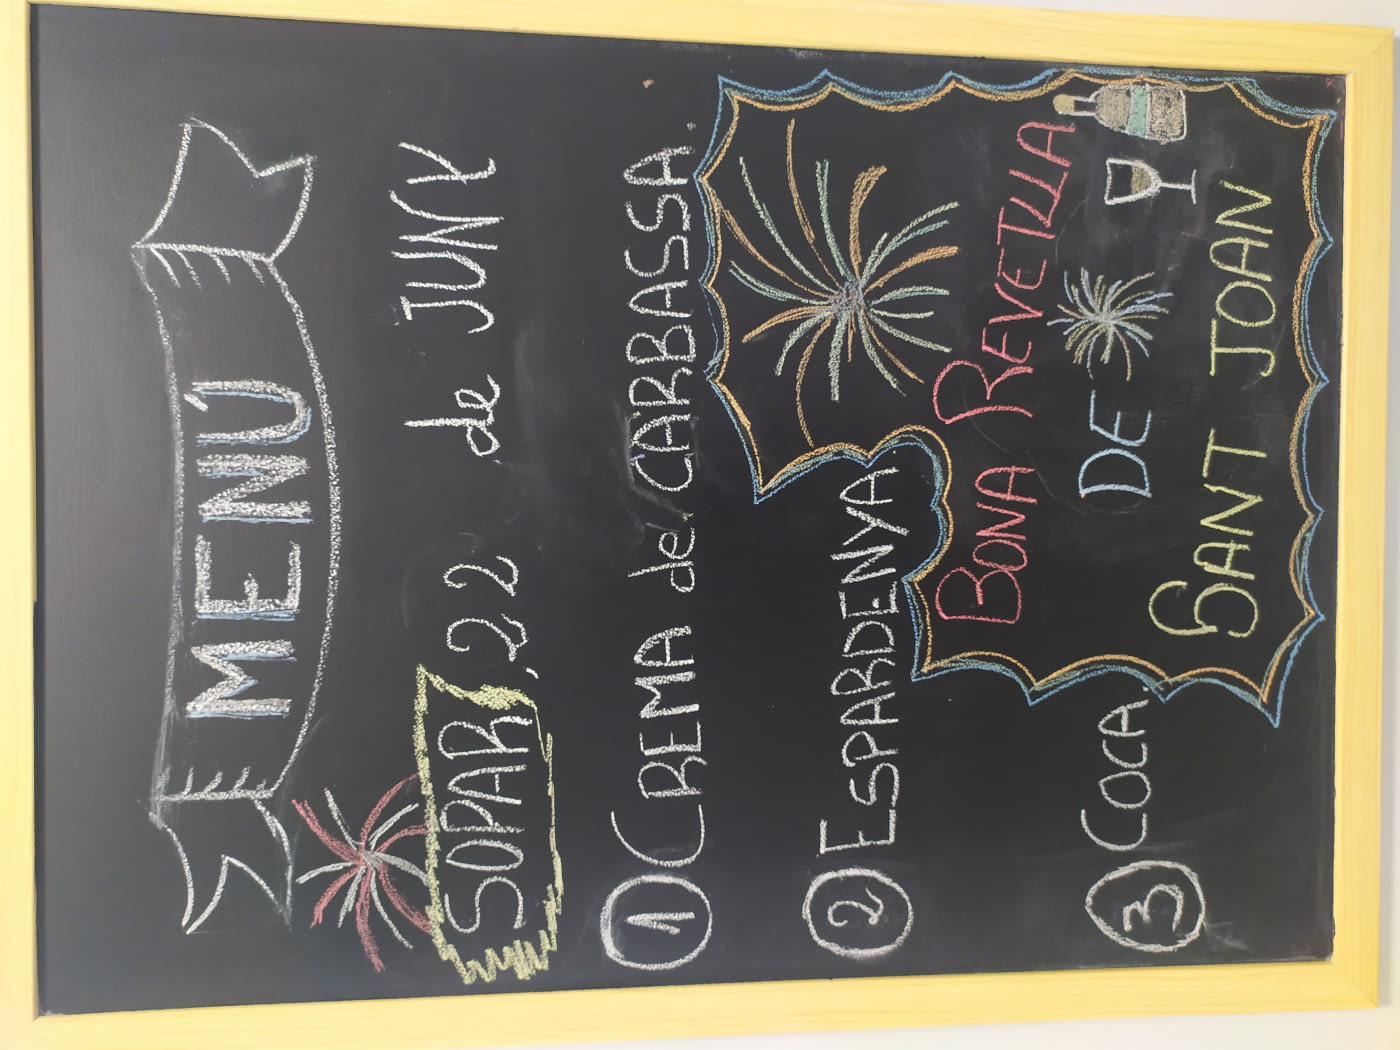 MENÚ
SOPAR, 22 de JUNY
1 CREMA de CARBASSA.
2 ESPARDENYA
3 COCA.
BONA REVETLLA
DE
SANT JOAN